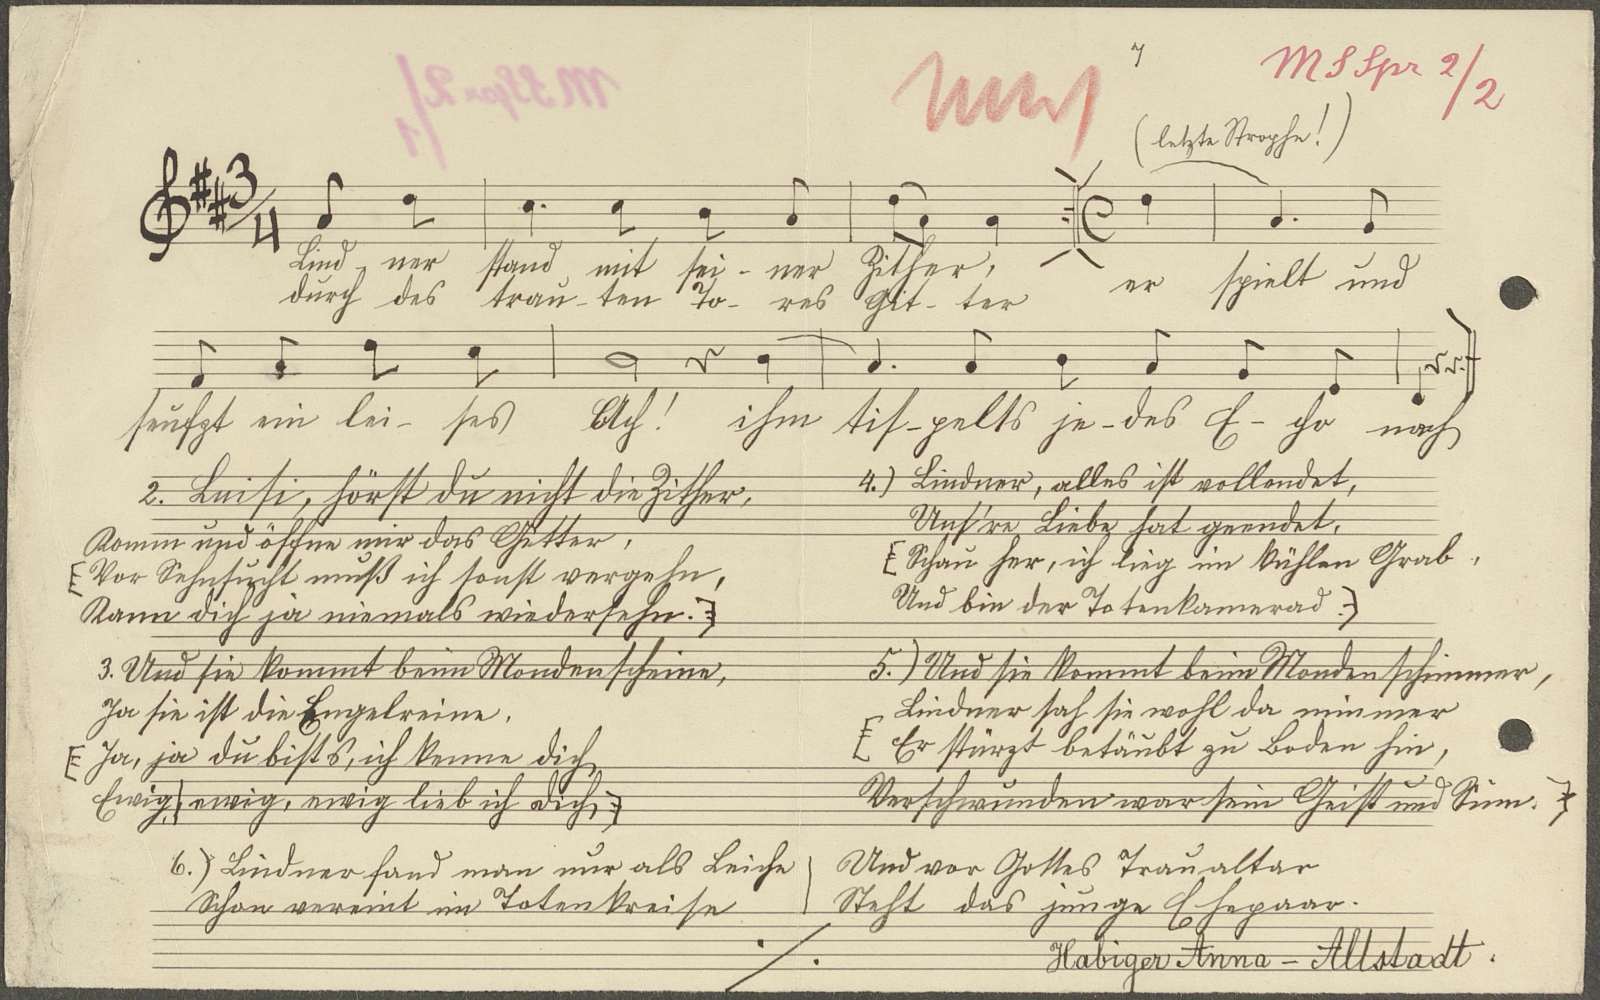 7
MS Spr 2/2
(letzte Strophe!)
3/4
Lind-ner stand mit sei-ner Zither,
durch des trau-ten To-res Git-ter
er spielt und
seufzt ein lei-ses Ach! ihm lis-pelts je-des E-cho nach
2. Luisi, hörst du nicht die Zither,
Komm und öffne mir das Gitter,
Vor Sehnsucht muß ich sonst vergehn,
Kann dich ja niemals wiedersehn.
3. Und sie kommt beim Mondenscheine,
Ja sie ist die Engelreine.
Ja, ja du bists, ich kenne dich,
Ewig, ewig, ewig lieb ich dich,
4.) Lindner, alles ist vollendet,
Uns're Liebe hat geendet.
Schau her, ich lieg im kühlen Grab,
Und bin der Totenkamerad.
5.) Und sie kommt beim Mondenschimmer,
Lindner sah sie wohl da nimmer
Er stürzt betäubt zu Boden hin,
Verschwunden war sein Geist und Sinn.
6.) Lindner fand man nur als Leiche
Schon vereint im Totenkreise
Und vor Gottes Traualtar
Steht das junge Ehepaar.
Habiger Anna – Altstadt.